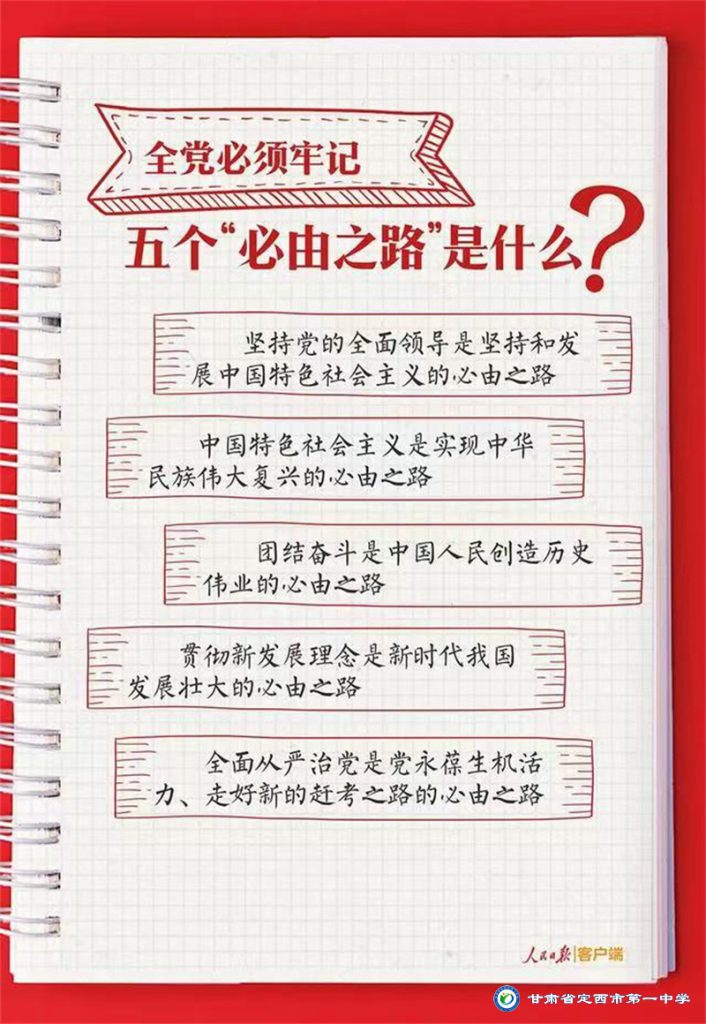 全党必须牢记
五个“必由之路”是什么?
坚持党的全面领导是坚持和发
展中国特色社会主义的必由之路
中国特色社会主义是实现中华
民族伟大复兴的必由之路
团结奋斗是中国人民创造历史
伟业的必由之路
贯彻新发展理念是新时代我国
发展壮大的必由之路
全面从严治党是党永葆生机活
力、走好新的赶考之路的必由之路
人民日报|客户端
甘肃省定西市第一中学